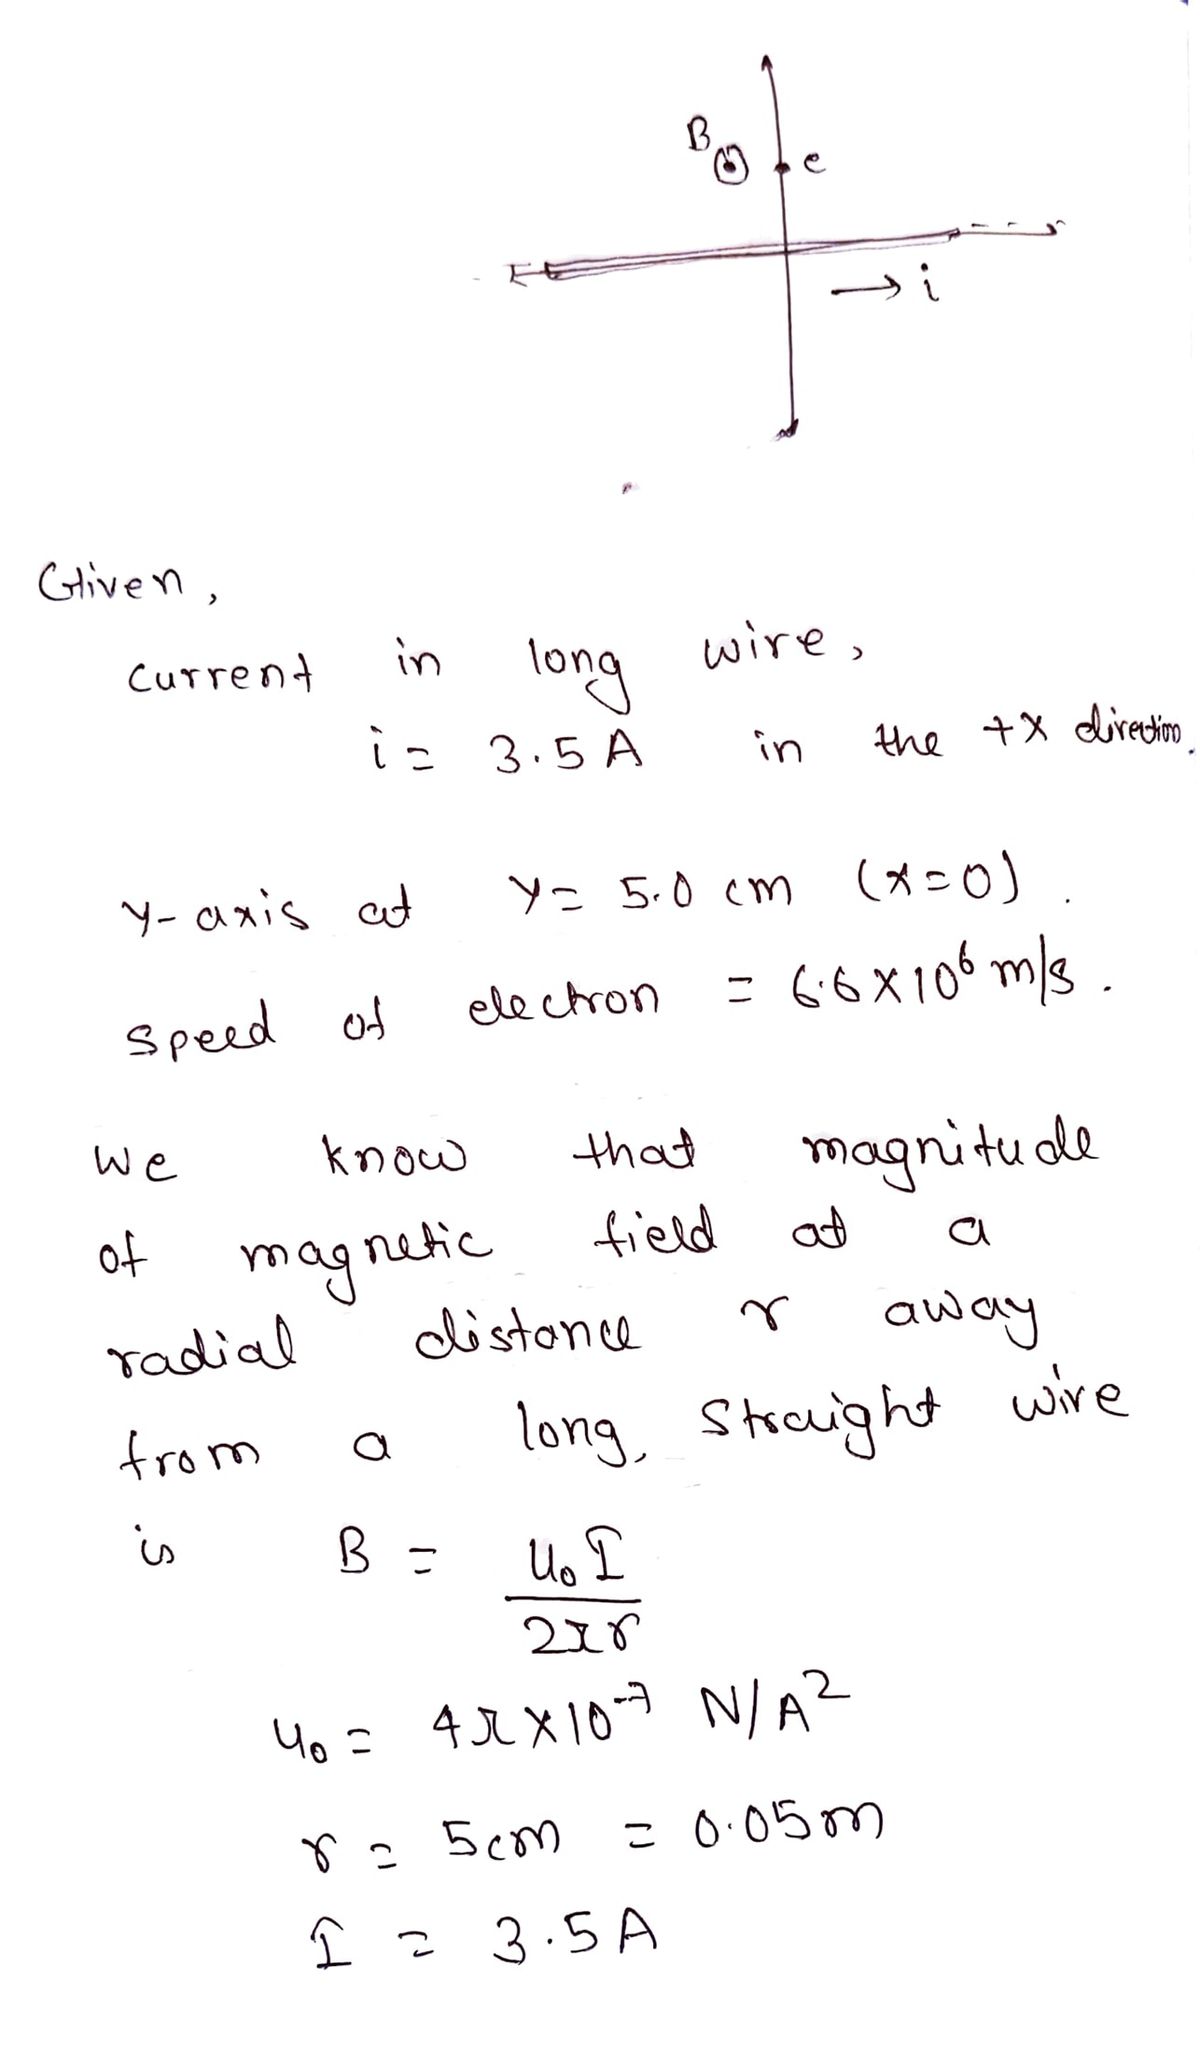 B
e
→ i
Given,
current in long wire,
i = 3.5 A in the +x direction.
y-axis at y = 5.0 cm (x=0).
speed of electron = 6.6 × 10⁶ m/s.
we know that magnitude
of magnetic field at a
radial distance r away
from a long, straight wire
is B = μ₀ I
2πr
μ₀ = 4π × 10⁻⁷ N/A²
r = 5cm = 0.05m
I = 3.5 A